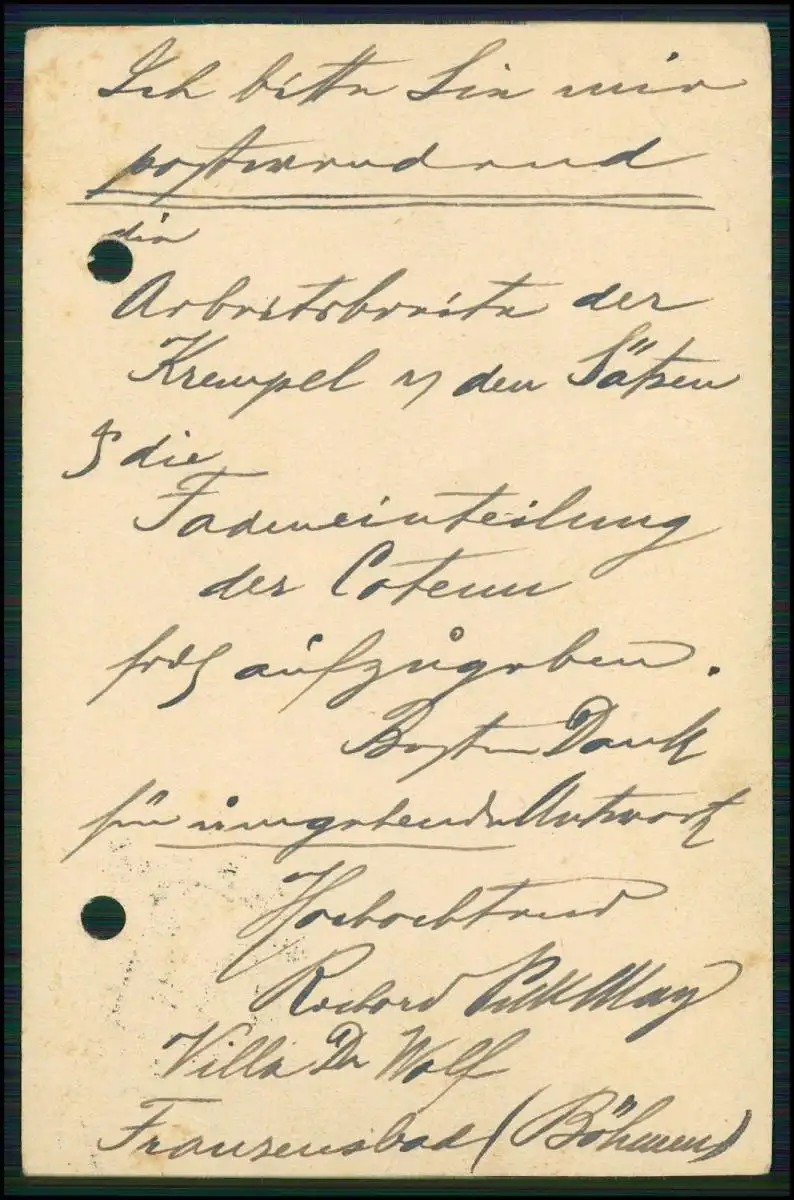 Ich bitte Sie mir
postwendend
die
Arbeitsbreite der
Krempel in den Sätzen
& die
Fadeneinteilung
der Coteun
frdl aufzugeben.
Besten Dank
für umgehende Antwort
Hochachtend
Richard May
Villa Dr Wolf
Franzensbad (Böhmen)